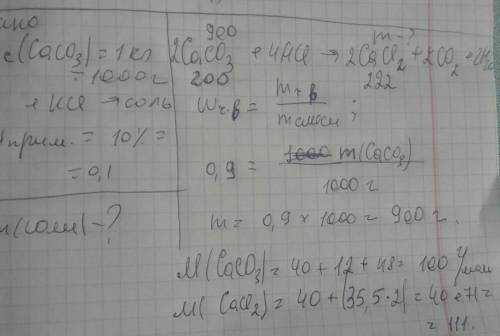 ано
(CaCO₃) = 1 кг
= 1000 г
+ HCl → соль
прим. = 10% =
= 0,1
m(соли) - ?
900 m - ?
2CaCO₃ + 4HCl → 2CaCl₂ + 2CO₂ +
200 222
Wч.в = mч.в / mсмеси ;
0,9 = m(CaCO₃) / 1000 г
m = 0,9 × 1000 = 900 г.
M(CaCO₃) = 40 + 12 + 48 = 100 г/моль
M(CaCl₂) = 40 + (35,5·2) = 40 + 71 =
= 111.